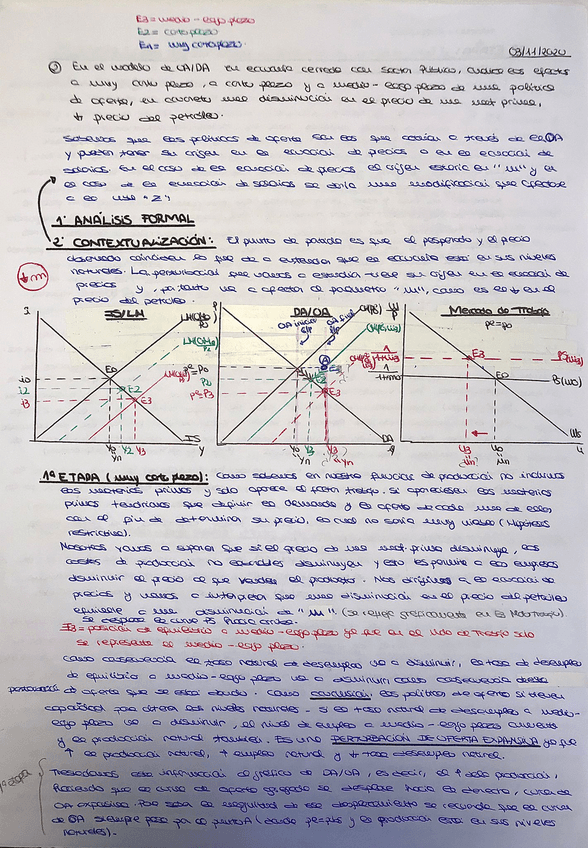 E3 = medio-largo plazo
E2 = corto plazo
E1 = muy corto plazo
03/11/2020
En el modelo de OA/DA en economía cerrada con sector público, analice los efectos
a muy corto plazo, a corto plazo y a medio-largo plazo de una política
de oferta, en concreto una disminución en el precio de una mat. prima,
↓ precio del petróleo.
Sabemos que las políticas de oferta son las que actúan a través de la OA
y pueden tener su origen en la ecuación de precios o en la ecuación de
salarios. En el caso de la ecuación de precios el origen estaría en "m" y en
el caso de la ecuación de salarios se daría una modificación que afectase
a la "z".
1º ANÁLISIS FORMAL
2º CONTEXTUALIZACIÓN: El punto de partida es que el pesperado y el precio
observado coinciden lo que da a entender que la economía está en sus niveles
naturales. La perturbación que vamos a estudiar tiene su origen en la ecuación de
precios y, por tanto va a afectar al parámetro "m", como es la ↓ en el
precio del petróleo.
↓m
IS/LM
DA/OA
Mercado de Trabajo
pe=po
E0
E2
E3
IS
Y
DA
E3
E0
1ª ETAPA (muy corto plazo): Como sabemos en nuestra función de producción no incluimos
las materias primas y solo aparece el factor trabajo. Si apareciesen las materias
primas tendríamos que definir la demanda y la oferta de cada una de ellas
con el fin de determinar su precio, lo cual no sería muy viable (Hipótesis
restrictiva).
Nosotros vamos a suponer que si el precio de una mat. prima disminuye, los
costes de producción no salariales disminuyen y esto les permite a las empresas
disminuir el precio al que venden el producto. Nos dirigimos a la ecuación de
precios y vamos a interpretar que una disminución en el precio del petróleo
equivale a una disminución de "m" (se refleja gráficamente en el Mdo Trabajo)
Se desplaza la curva PS hacia arriba.
E3 = posición de equilibrio a medio-largo plazo ya que en el Mdo de Trabajo solo
se representa el medio-largo plazo.
Como consecuencia la tasa natural de desempleo va a disminuir, la tasa de desempleo
de equilibrio a medio-largo plazo va a disminuir como consecuencia de esta
perturbación de oferta que se está dando. Como conclusión: las políticas de oferta sí tienen
capacidad para alterar los niveles naturales - si la tasa natural de desempleo a medio-
largo plazo va a disminuir, el nivel de empleo a medio-largo plazo aumenta
y la producción natural también. Es una PERTURBACIÓN DE OFERTA EXPANSIVA ya que
↑ la producción natural, ↑ empleo natural y ↓ tasa desempleo natural.
1ª etapa
Trasladamos esta información al gráfico de DA/OA, es decir, el ↑ de la producción,
haciendo que la curva de oferta agregada se desplace hacia la derecha, curva de
OA expansiva. Para saber la magnitud de ese desplazamiento se recuerda que la curva
de OA siempre pasa por el punto A (donde pe=pt y la producción está en sus niveles
naturales).